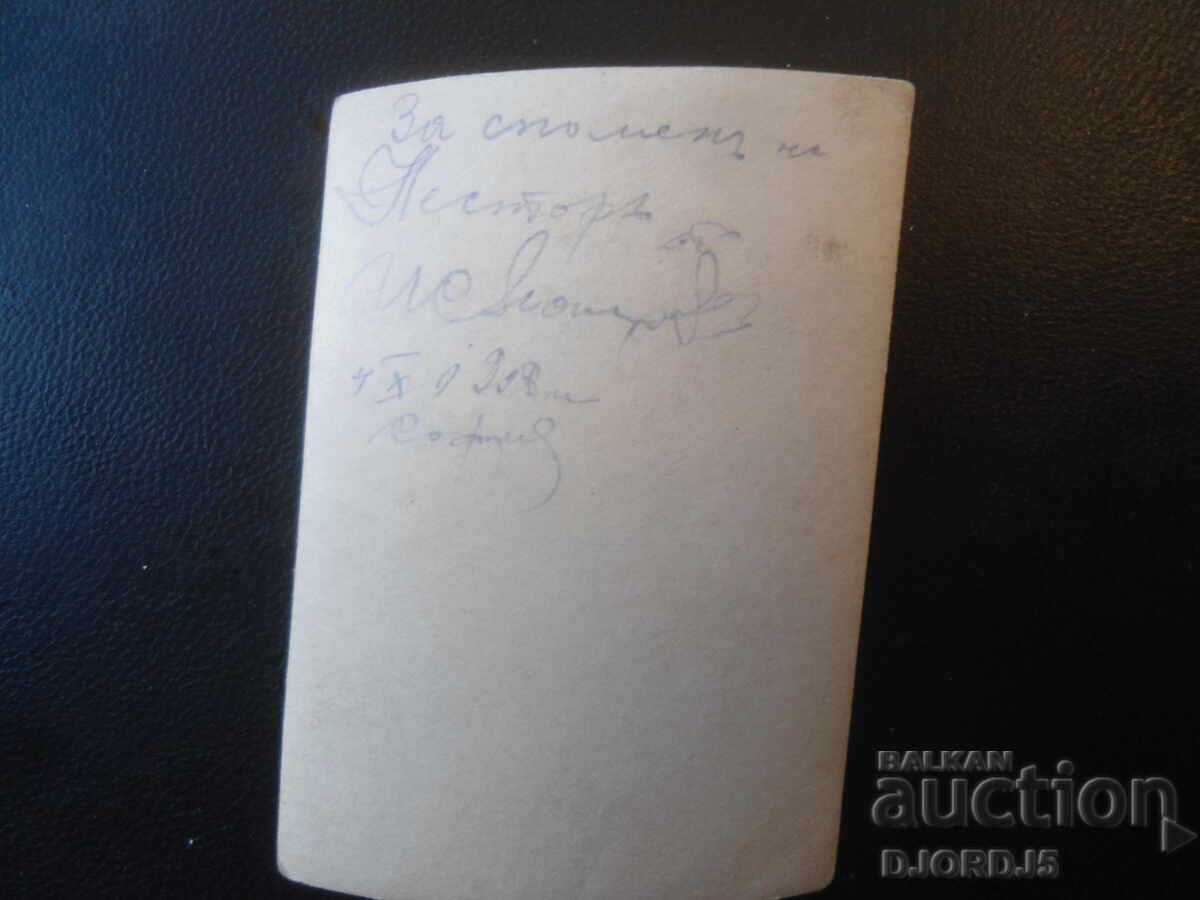 За споменъ на
Несторъ
отъ
4 X 1938 г.
София
BALKAN
auction
DJORDJ5